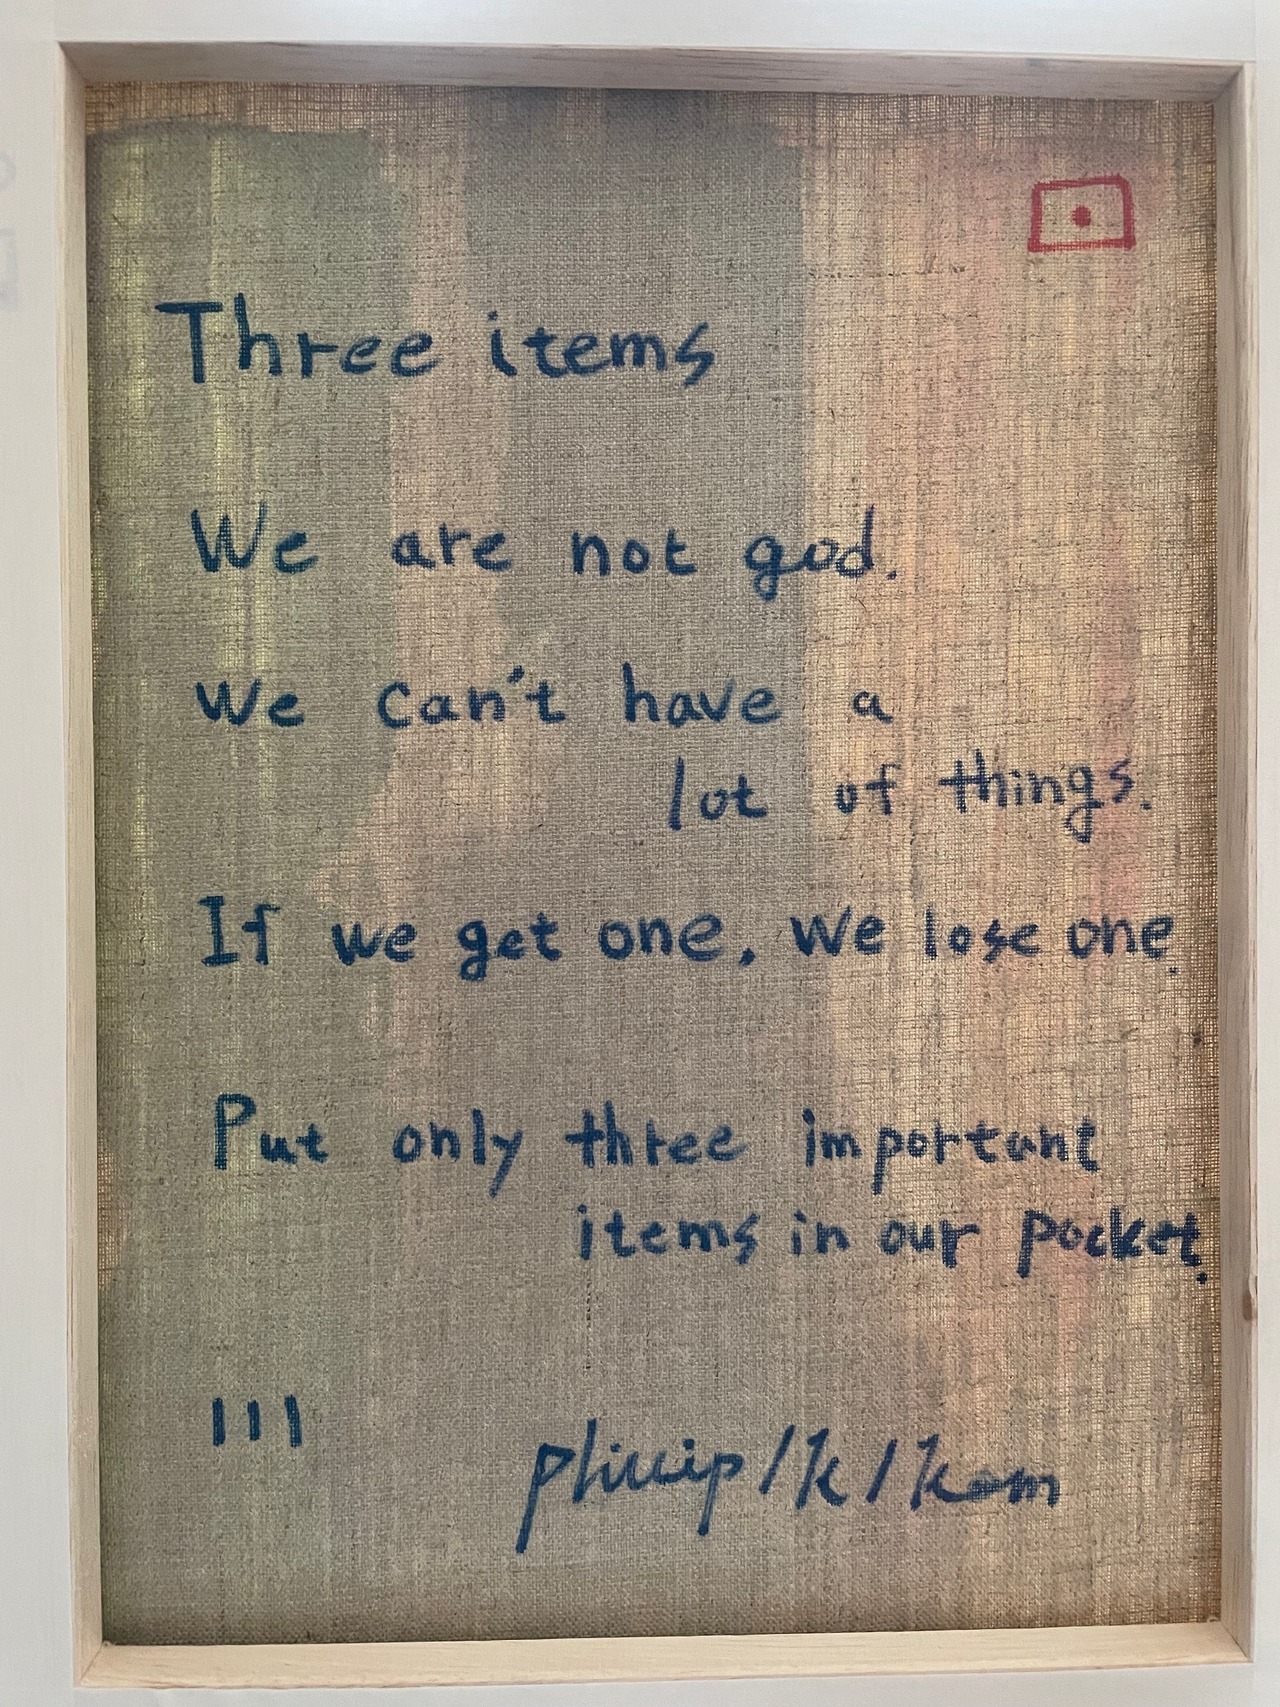 Three items
We are not god.
We can't have a
lot of things.
If we get one, we lose one.
Put only three important
items in our pocket.
III
phillip/k/kom